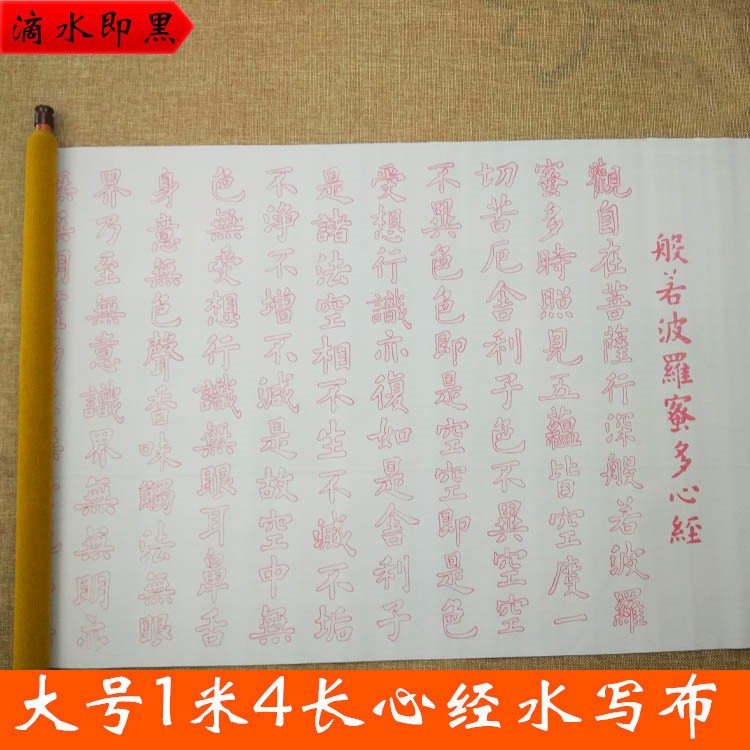 滴水即黑
般若波羅蜜多心經
觀自在菩薩行深般若波羅
蜜多時照見五蘊皆空度一
切苦厄舍利子色不異空空
不異色色即是空空即是色
受想行識亦復如是舍利子
是諸法空相不生不滅不垢
不淨不增不減是故空中無
色無受想行識無眼耳鼻舌
身意無色聲香味觸法無眼
界乃至無意識界無無明亦
大号1米4长心经水写布